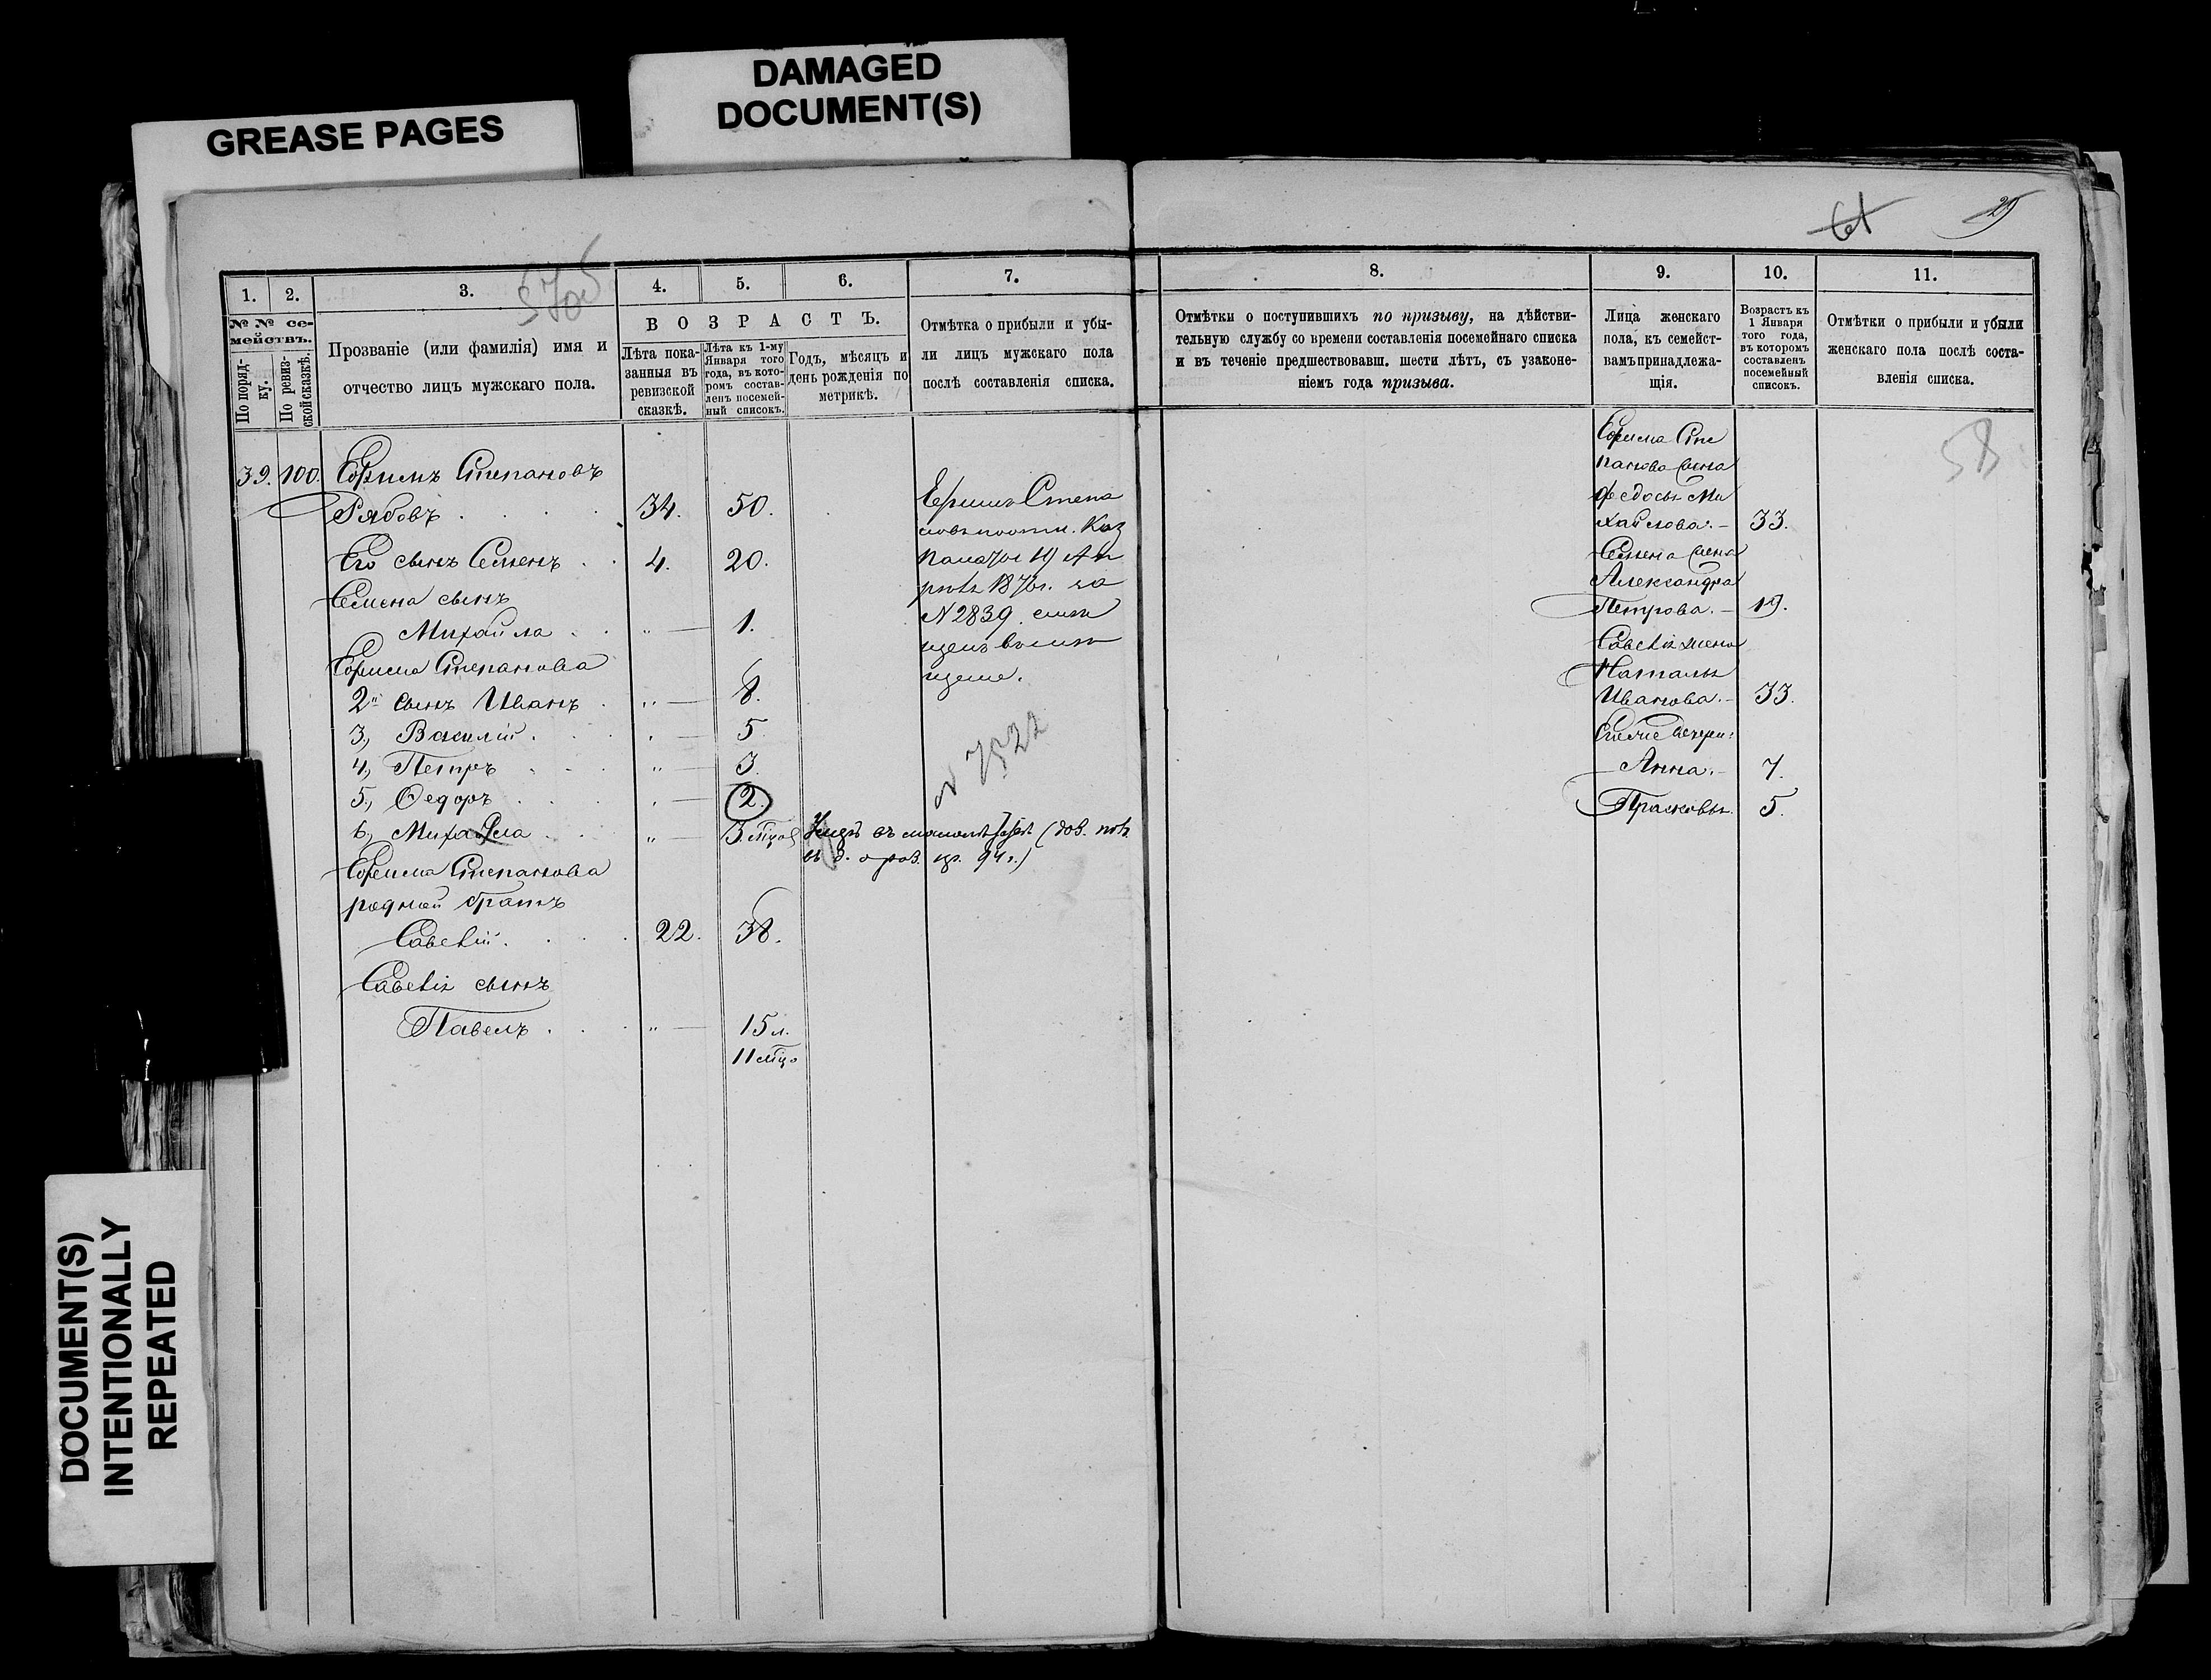 DAMAGED
DOCUMENT(S)
GREASE PAGES
DOCUMENT(S)
INTENTIONALLY
REPEATED
29
1.
2.
3.
4.
5.
6.
7.
№ № се-
мействъ.
По поряд-
ку.
По ревиз-
ской сказкѣ.
Прозваніе (или фамилія) имя и
отчество лицъ мужскаго пола.
ВОЗРАСТЪ.
Лѣта пока-
занныя въ
ревизской
сказкѣ.
Лѣта къ 1-му
Января того
года, въ кото-
ромъ состав-
ленъ посемей-
ный списокъ.
Годъ, мѣсяцъ и
день рожденія по
метрикѣ.
Отмѣтка о прибыли и убы-
ли лицъ мужскаго пола
послѣ составленія списка.
39. 100. Ефимъ Степановъ
Рябовъ . . . 34. 50.
Его сынъ Семенъ . . 4. 20.
Семена сынъ
Михайла . . " — 1.
Ефима Степанова
2й сынъ Иванъ . " — 8.
3, Василій . . " — 5.
4, Петръ . . . " — 3.
5, Федоръ . . . " — 2.
6, Михайла . . " — 3. мѣсе
Ефима Степанова
родной братъ
Савелій . . . 22. 38.
Савелія сынъ
Павелъ . . . " — 15 л.
11 мѣс
Ефимъ Степа
новъ
Палаты 19 Ап
рѣля 187 г. за
N 2839
N 7522
8.
9.
10.
11.
Отмѣтки о поступившихъ по призыву, на дѣйстви-
тельную службу со времени составленія посемейнаго списка
и въ теченіе предшествовавш. шести лѣтъ, съ узаконе-
ніемъ года призыва.
Лица женскаго
пола, къ семейст-
вамъ принадлежа-
щія.
Возрастъ къ
1 Января
того года,
въ которомъ
составленъ
посемейный
списокъ.
Отмѣтки о прибыли и убыли
женскаго пола послѣ соста-
вленія списка.
58
Ефима Сте
панова жена
Федосья Ми
хайлова. – 33.
Семена жена
Александра
Петрова. – 19.
Савелія жена
Наталья
Иванова. – 33.
Анна. – 7.
Прасковья. 5.